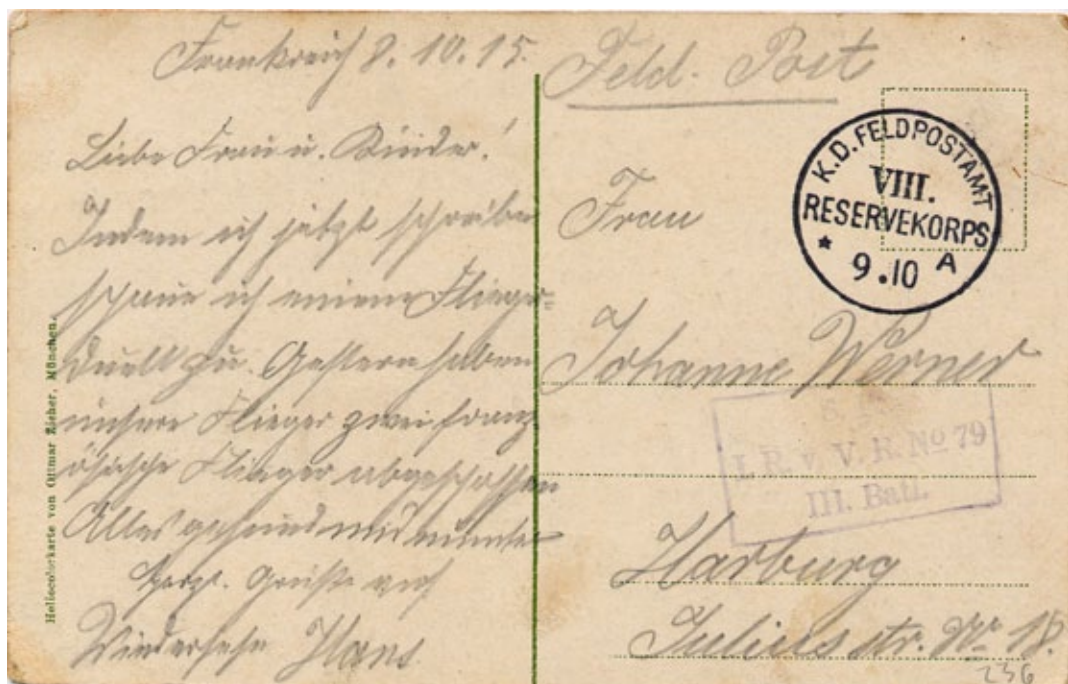 Frankreich 8.10.15.
Liebe Frau u. Kinder!
Indem ich jetzt schreibe
schaue ich einem Flieger=
duell zu. Gestern haben
unsere Flieger zwei franz
ösische Flieger abgeschossen
Alles gesund und munter
Herzl. Grüße auf
Wiedersehn Hans
Heliocolorkarte von Ottmar Zieher, München.
Feld. Post
K.D. FELDPOSTAMT
VIII.
RESERVEKORPS
* 9.10 A
Frau
Johanne Werner
S.
I. R. v. V. R. No 79
III. Batl.
Harburg
Juliusstr. No 18.
236